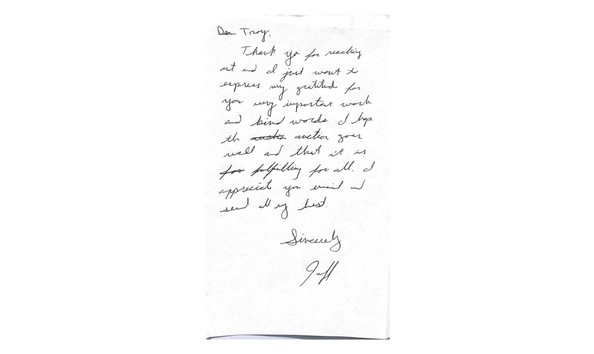 Dear Troy,
Thank yo for reaching
out and I just want to
express my gratitud for
you very important work
and kind words. I hope
th auction goes
well and that it is
for fulfilling for all. I
appreciate you email and
send all my best
Sincerely
Jeff